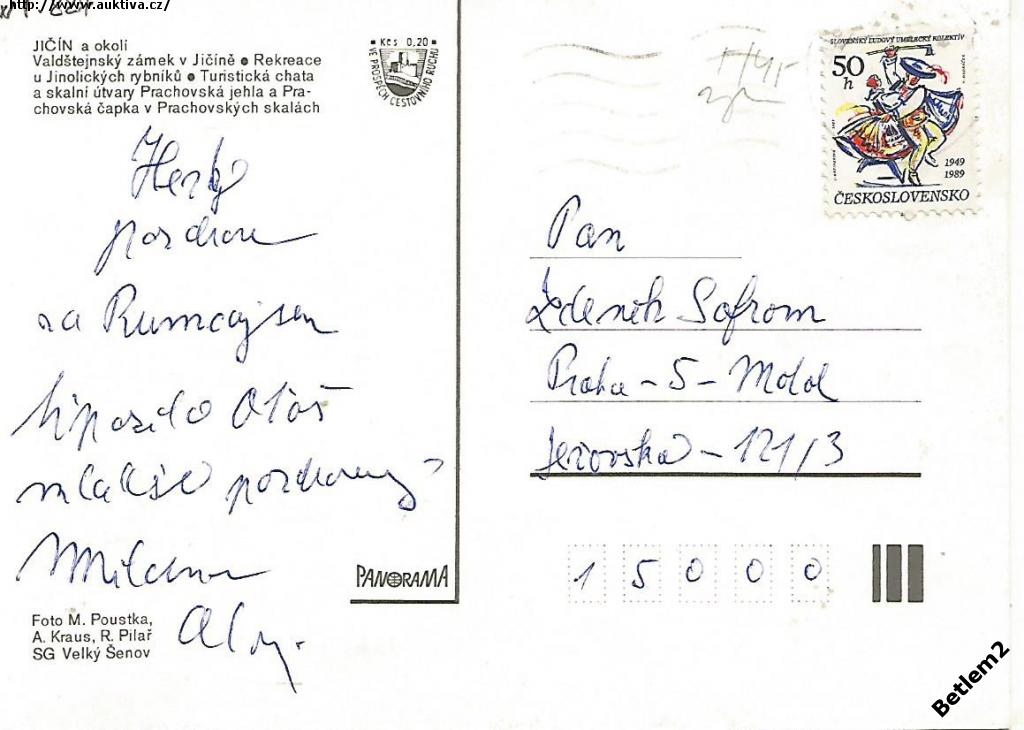 http://www.auktiva.cz/
JIČÍN a okolí
Valdštejnský zámek v Jičíně ● Rekreace
u Jinolických rybníků ● Turistická chata
a skalní útvary Prachovská jehla a Pra-
chovská čapka v Prachovských skalách
Kčs 0,20
VE PROSPĚCH CESTOVNÍHO RUCHU
SLOVENSKÝ ĽUDOVÝ UMELECKÝ KOLEKTÍV
50
h
1949
1989
ČESKOSLOVENSKO
Hezký
pozdrav
za Rumcajsem
Oldoš
pozdravy
PANORAMA
Foto M. Poustka,
A. Kraus, R. Pilař
SG Velký Šenov
Pan
Zdeněk Safrom
Praha - 5 - Motol
Jezovska - 121/3
1 5 0 0 0
Betlem2